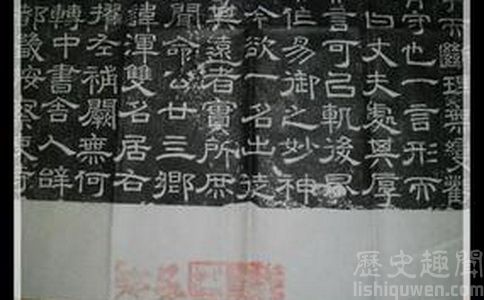 守也一言形而
曰丈夫處其厚
言可㠯軌後昆
作易御之妙神
今欲一名出徒
其遠者實所庶
聞命公廿三鄉
渾雙名居右
擢左補闕無何
轉中書舍人辥
都畿按察
歷史趣聞
lishiquwen.com